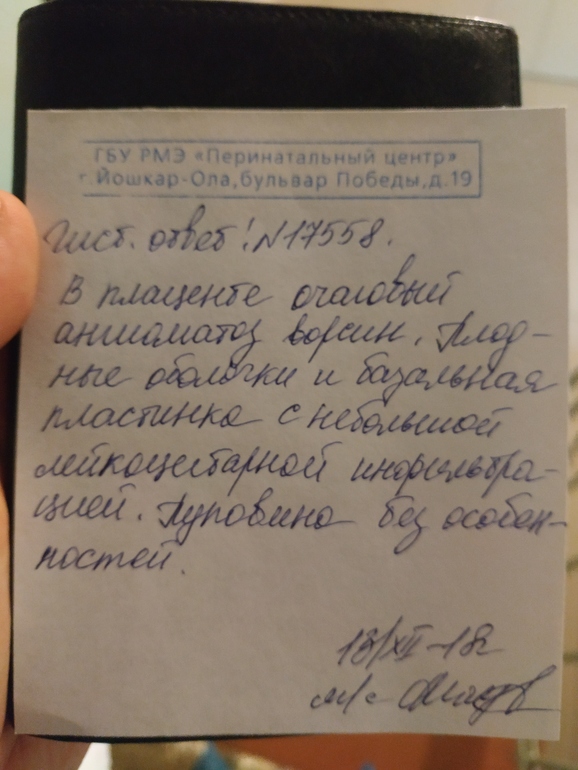 ГБУ РМЭ «Перинатальный центр»
г.Йошкар-Ола,бульвар Победы,д.19
Гист. ответ! N17558.
В плаценте очаговый
ангиоматоз ворсин. Плод-
ные оболочки и базальная
пластинка с небольшой
лейкоцитарной инфильтра-
цией. Пуповина без особен-
ностей.
13/XII-18г
м/с